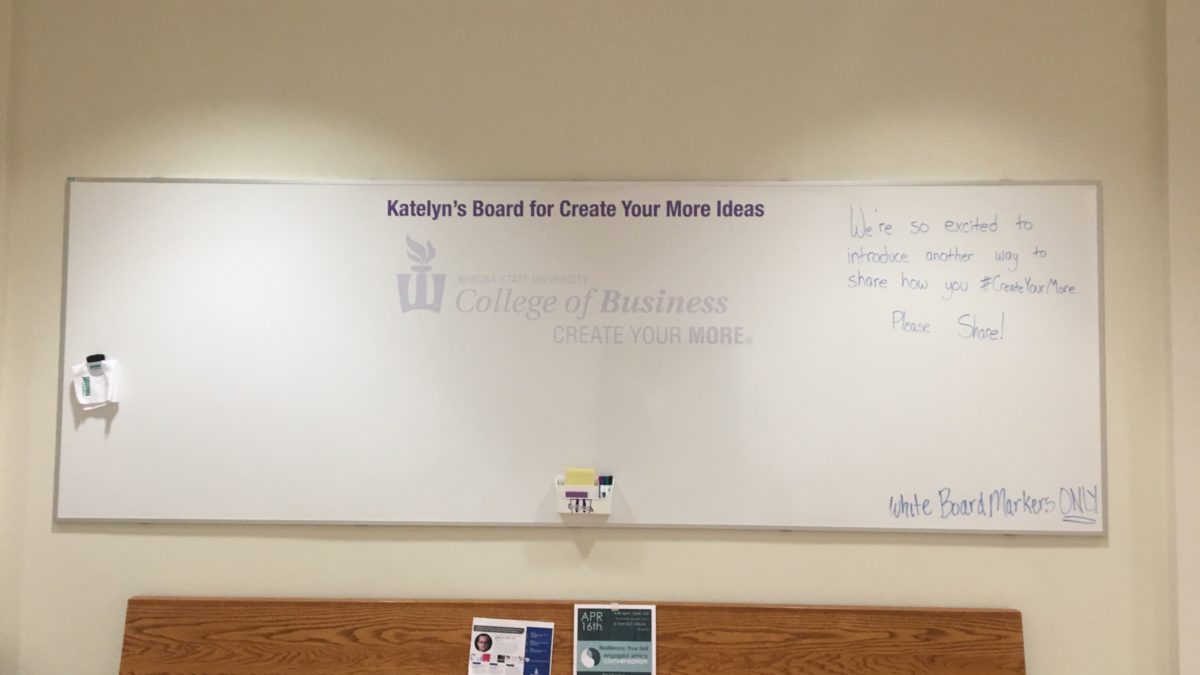 Katelyn's Board for Create Your More Ideas
WINONA STATE UNIVERSITY
College of Business
CREATE YOUR MORE®
We're so excited to
introduce another way to
share how you #CreateYourMore.
Please Share!
White Board Markers ONLY
APR
16th
Resilience: True Grit
engaged ethics
conversation